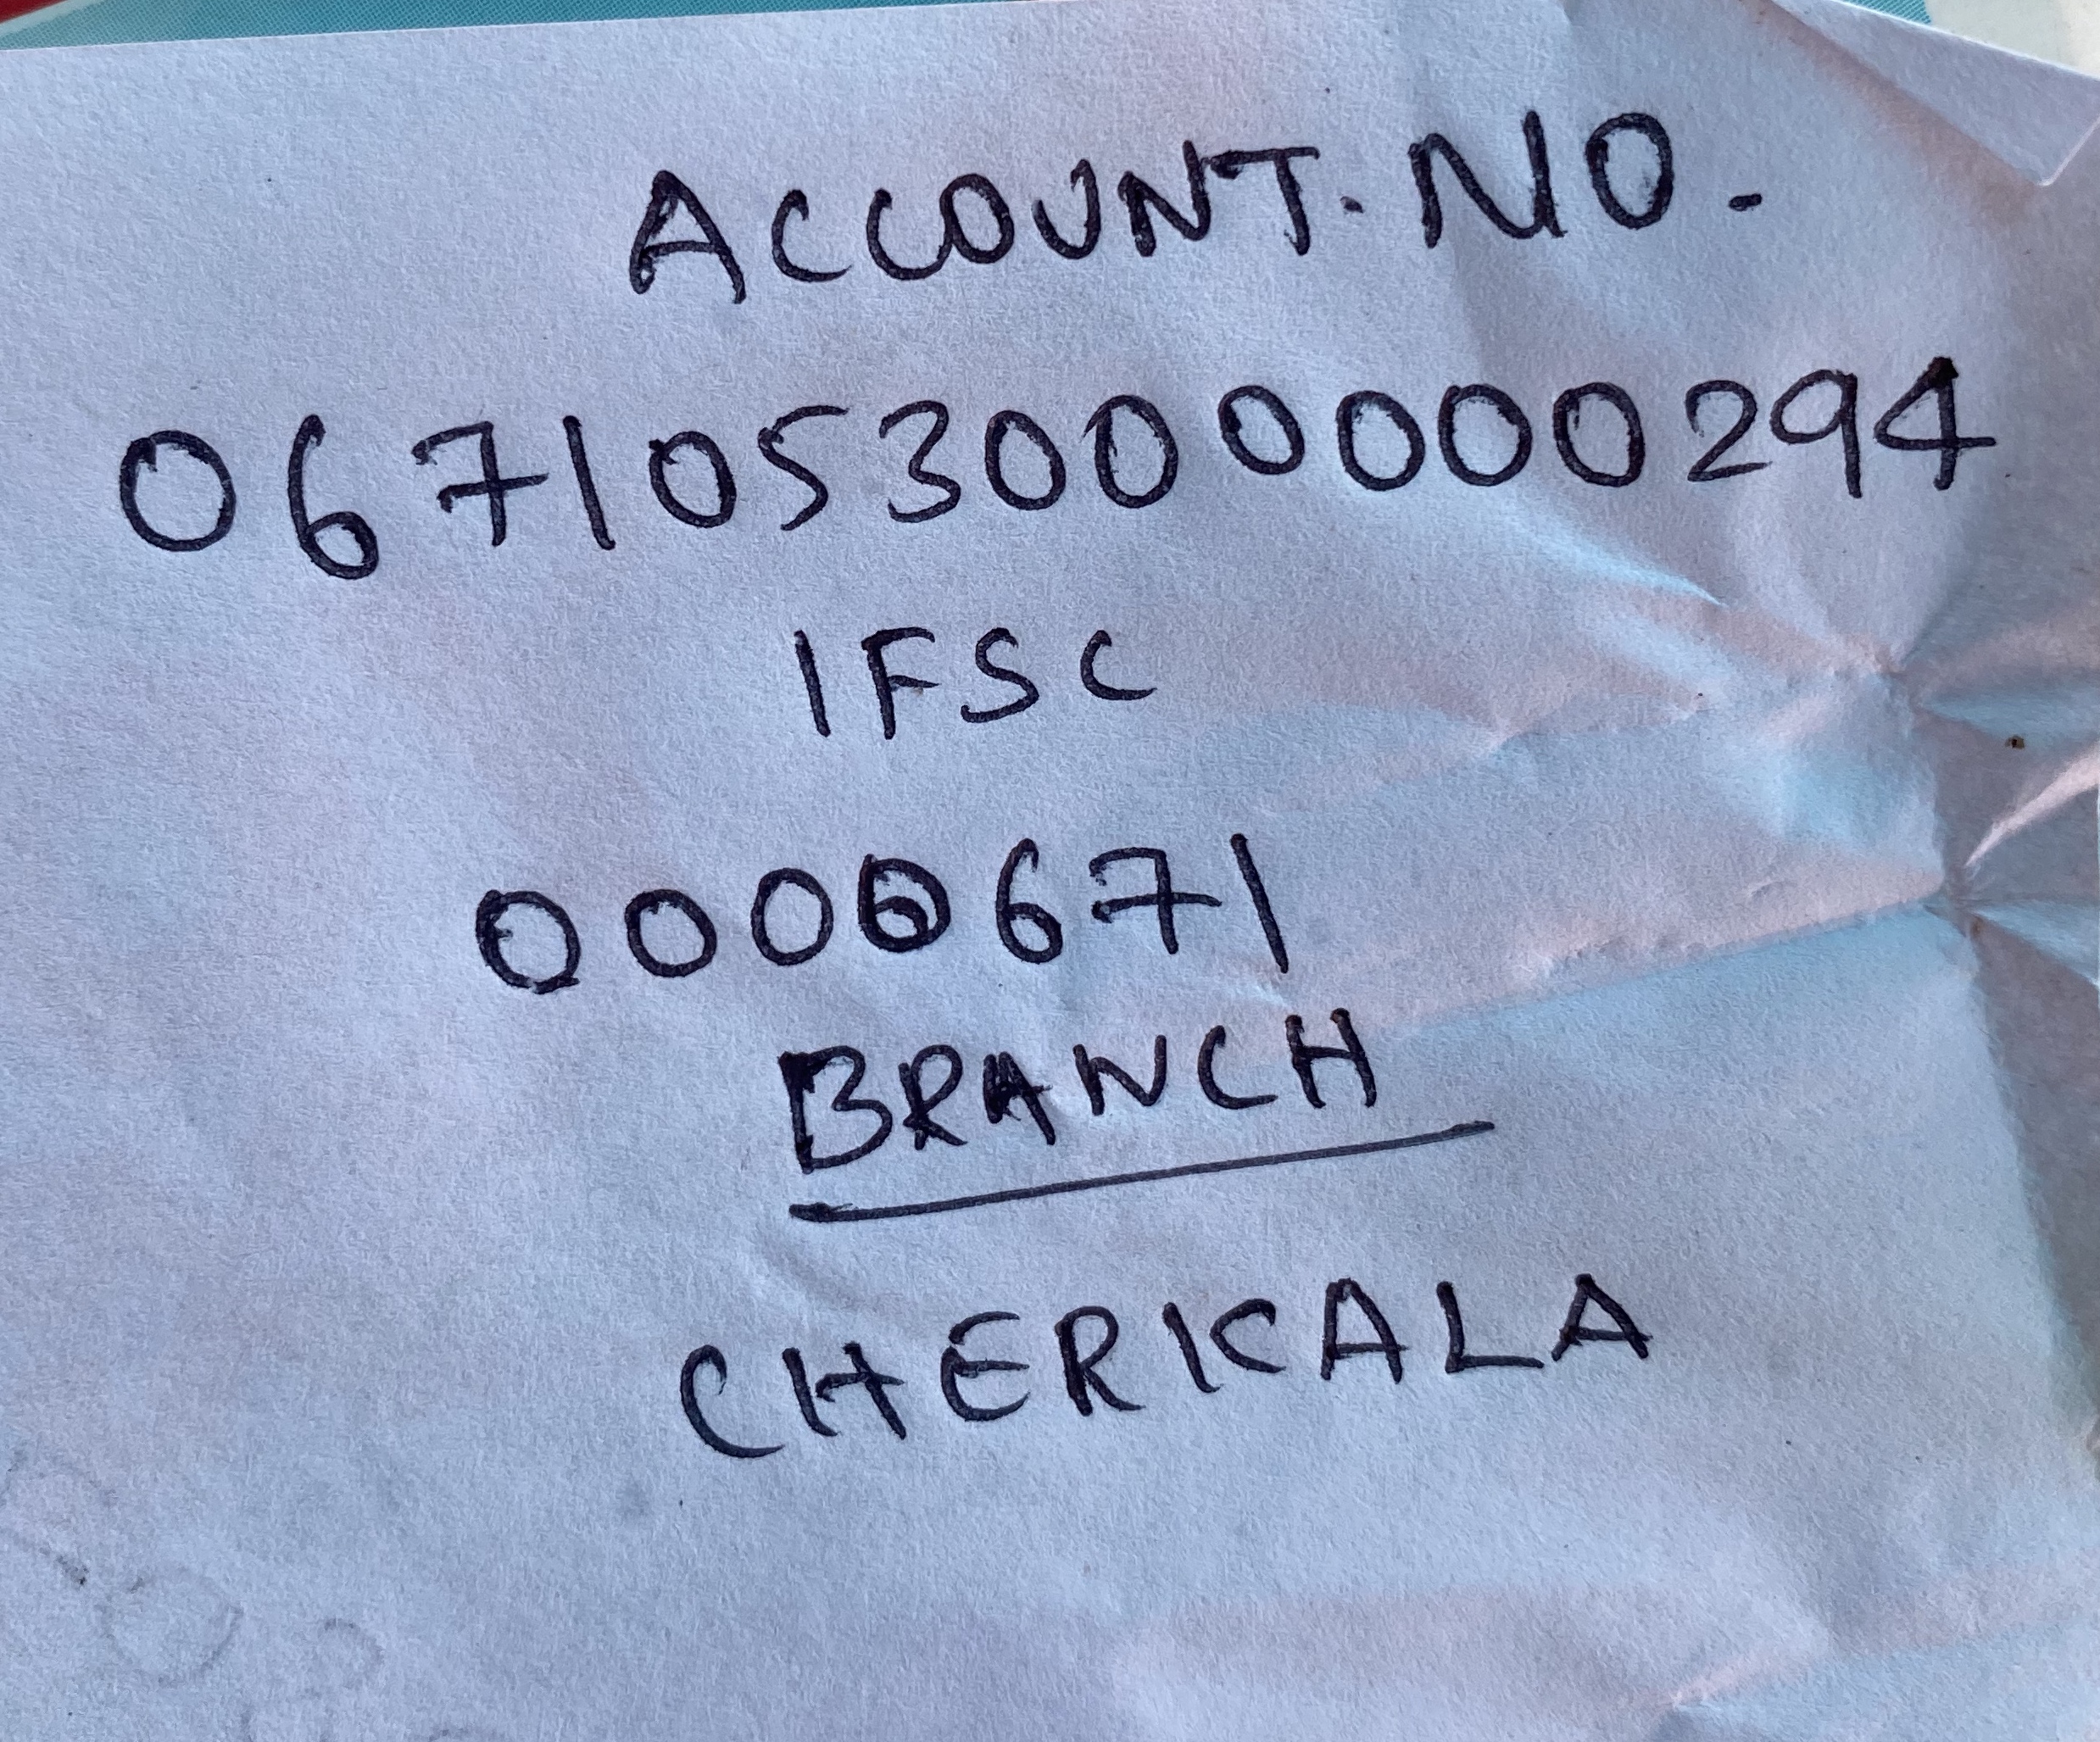 ACCOUNT. NO.
0671053000000294
IFSC
0000671
BRANCH
CHERKALA